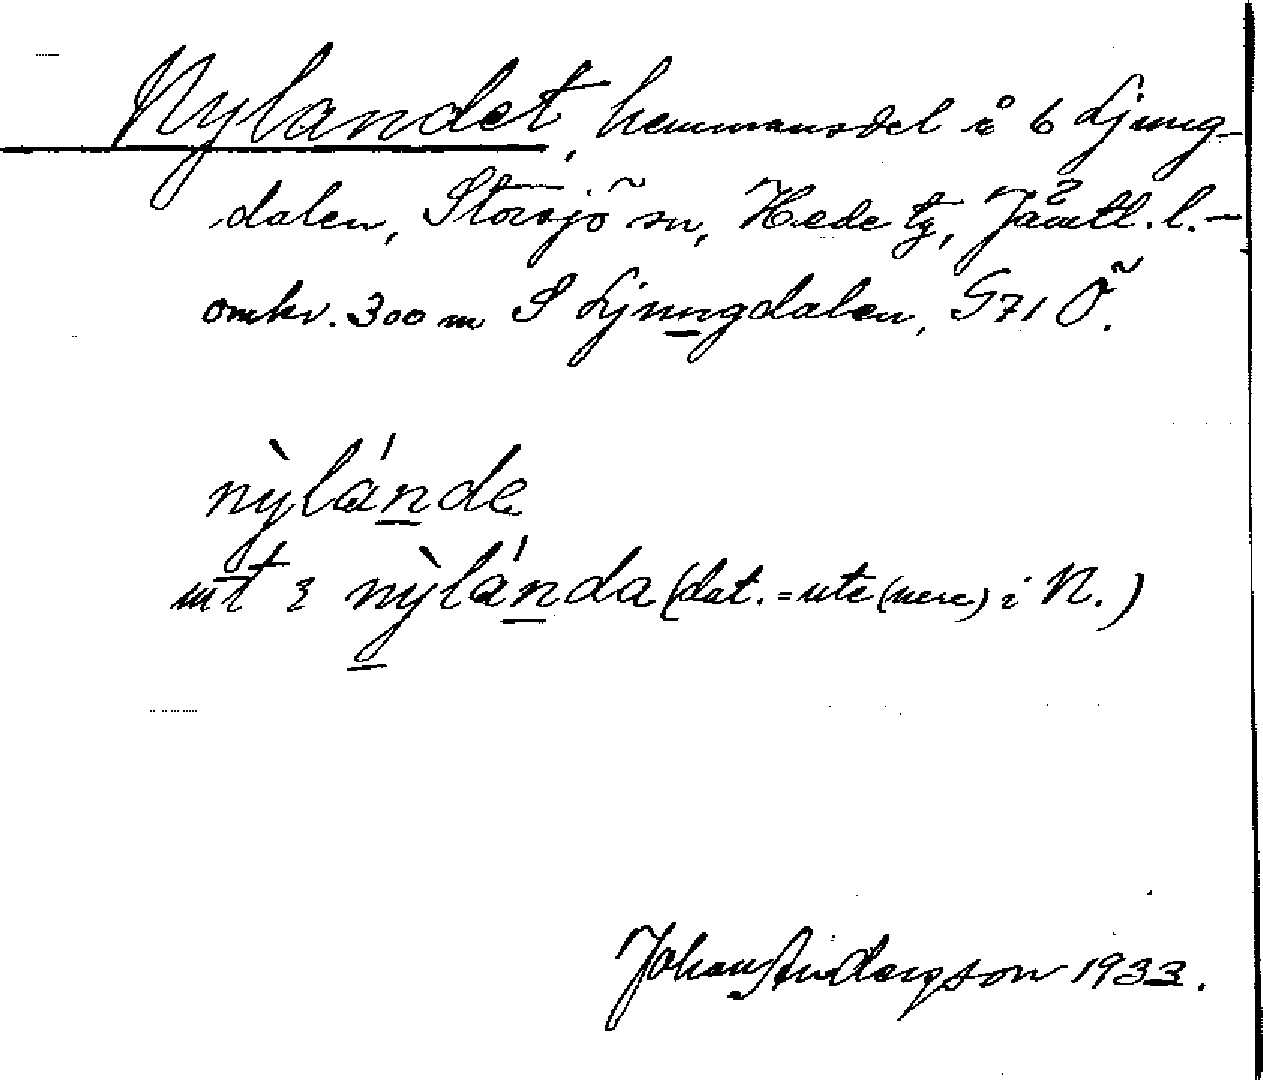 Nylandet, hemmansdel i 6 Ljung-
dalen, Storsjö sn, Hede tg, Jämtl. l. –
omkr. 300 m S Ljungdalen, G 71 Ö.
nỳlánde
nỳlánda (dat. = ute (nere) i N.)
Johan Andersson 1933.